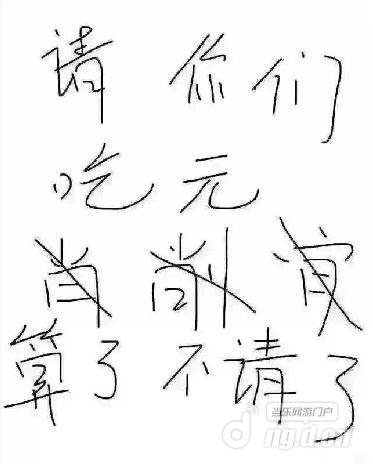 请 你 们
吃 元
肖 削
算了 不请了
当乐网游门户
ng.d.cn